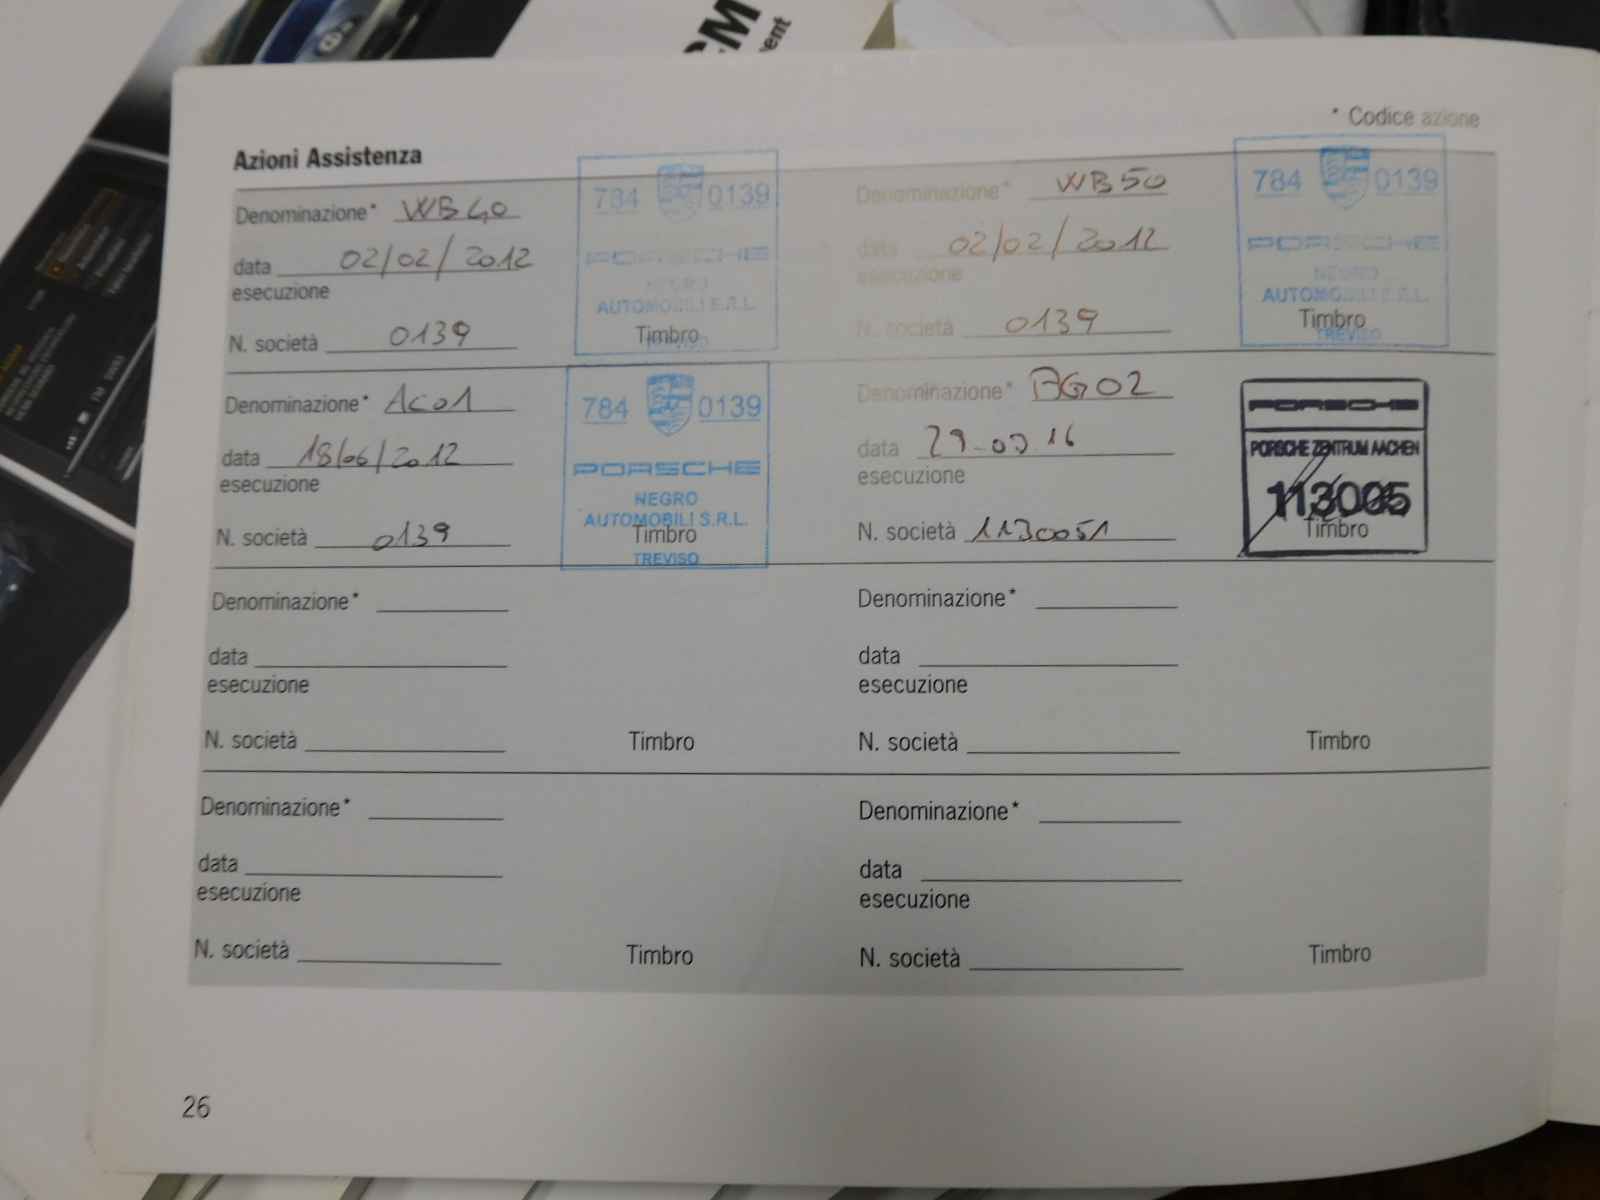 * Codice azione
Azioni Assistenza
Denominazione* WB40
data 02/02/2012
esecuzione
N. società 0139
784 0139
PORSCHE
NEGRO
AUTOMOBILI S.R.L.
Timbro
Denominazione* WB50
data 02/02/2012
esecuzione
N. società 0139
784 0139
PORSCHE
NEGRO
AUTOMOBILI S.R.L.
Timbro
TREVISO
Denominazione* AC01
data 18/06/2012
esecuzione
N. società 0139
784 0139
PORSCHE
NEGRO
AUTOMOBILI S.R.L.
Timbro
TREVISO
Denominazione* AG02
data
esecuzione
N. società 1130051
PORSCHE
PORSCHE ZENTRUM AACHEN
113005
Timbro
Denominazione*
data
esecuzione
N. società
Timbro
Denominazione*
data
esecuzione
N. società
Timbro
Denominazione*
data
esecuzione
N. società
Timbro
Denominazione*
data
esecuzione
N. società
Timbro
26